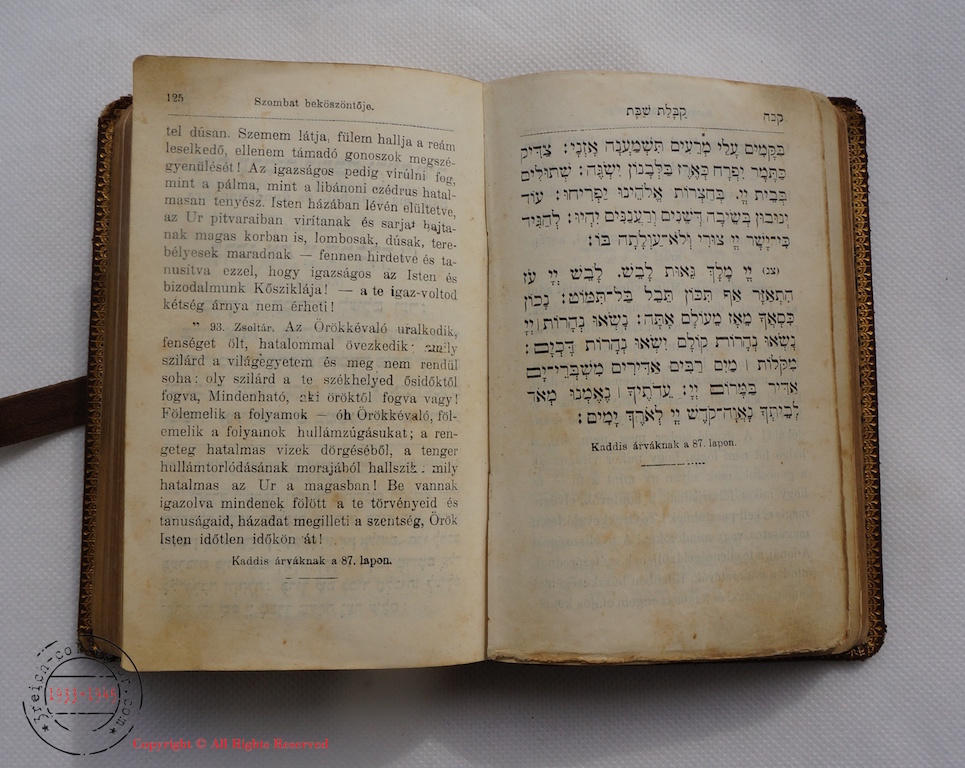 125
Szombat beköszöntője.
tel dúsan. Szemem látja, fülem hallja a reám
leselkedő, ellenem támadó gonoszok megszé-
gyenülését! Az igazságos pedig virúlni fog,
mint a pálma, mint a libánoni czédrus hatal-
masan tenyész. Isten házában lévén elültetve,
az Ur pitvaraiban virítanak és sarjat hajta-
nak magas korban is, lombosak, dúsak, tere-
bélyesek maradnak — fennen hirdetve és ta-
nusítva ezzel, hogy igazságos az Isten és
bizodalmunk Kősziklája! — a te igaz-voltod
kétség árnya nem érheti!
93. Zsoltár. Az Örökkévaló uralkodik,
fenséget ölt, hatalommal övezkedik: amily
szilárd a világegyetem és meg nem rendül
soha: oly szilárd a te székhelyed ősidőktől
fogva, Mindenható, aki öröktől fogva vagy!
Fölemelik a folyamok — óh Örökkévaló, föl-
emelik a folyamok hullámzúgásukat; a ren-
geteg hatalmas vizek dörgéséből, a tenger
hullámtorlódásának morajából hallszik: mily
hatalmas az Ur a magasban! Be vannak
igazolva mindenek fölött a te törvényeid és
tanuságaid, házadat megilleti a szentség, Örök
Isten időtlen időkön át!
Kaddis árváknak a 87. lapon.
קַבָּלַת שַׁבָּת
קכה
בַּקָּמִים עָלַי מְרֵעִים תִּשְׁמַעְנָה אָזְנָי: צַדִּיק
כַּתָּמָר יִפְרָח כְּאֶרֶז בַּלְּבָנוֹן יִשְׂגֶּה: שְׁתוּלִים
בְּבֵית יְיָ. בְּחַצְרוֹת אֱלֹהֵינוּ יַפְרִיחוּ: עוֹד
יְנוּבוּן בְּשֵׂיבָה דְּשֵׁנִים וְרַעֲנַנִּים יִהְיוּ: לְהַגִּיד
כִּי־יָשָׁר יְיָ צוּרִי וְלֹא־עַוְלָתָה בּוֹ:
(צג) יְיָ מָלָךְ גֵּאוּת לָבֵשׁ. לָבֵשׁ יְיָ עֹז
הִתְאַזָּר אַף תִּכּוֹן תֵּבֵל בַּל־תִּמּוֹט: נָכוֹן
כִּסְאֲךָ מֵאָז מֵעוֹלָם אָתָּה: נָשְׂאוּ נְהָרוֹת | יְיָ
נָשְׂאוּ נְהָרוֹת קוֹלָם יִשְׂאוּ נְהָרוֹת דָּכְיָם:
מִקֹּלוֹת | מַיִם רַבִּים אַדִּירִים מִשְׁבְּרֵי־יָם
אַדִּיר בַּמָּרוֹם יְיָ: עֵדֹתֶיךָ | נֶאֶמְנוּ מְאֹד
לְבֵיתְךָ נָאֲוָה־קֹדֶשׁ יְיָ לְאֹרֶךְ יָמִים:
Kaddis árváknak a 87. lapon.
1933-1945
Copyright © All Rights Reserved